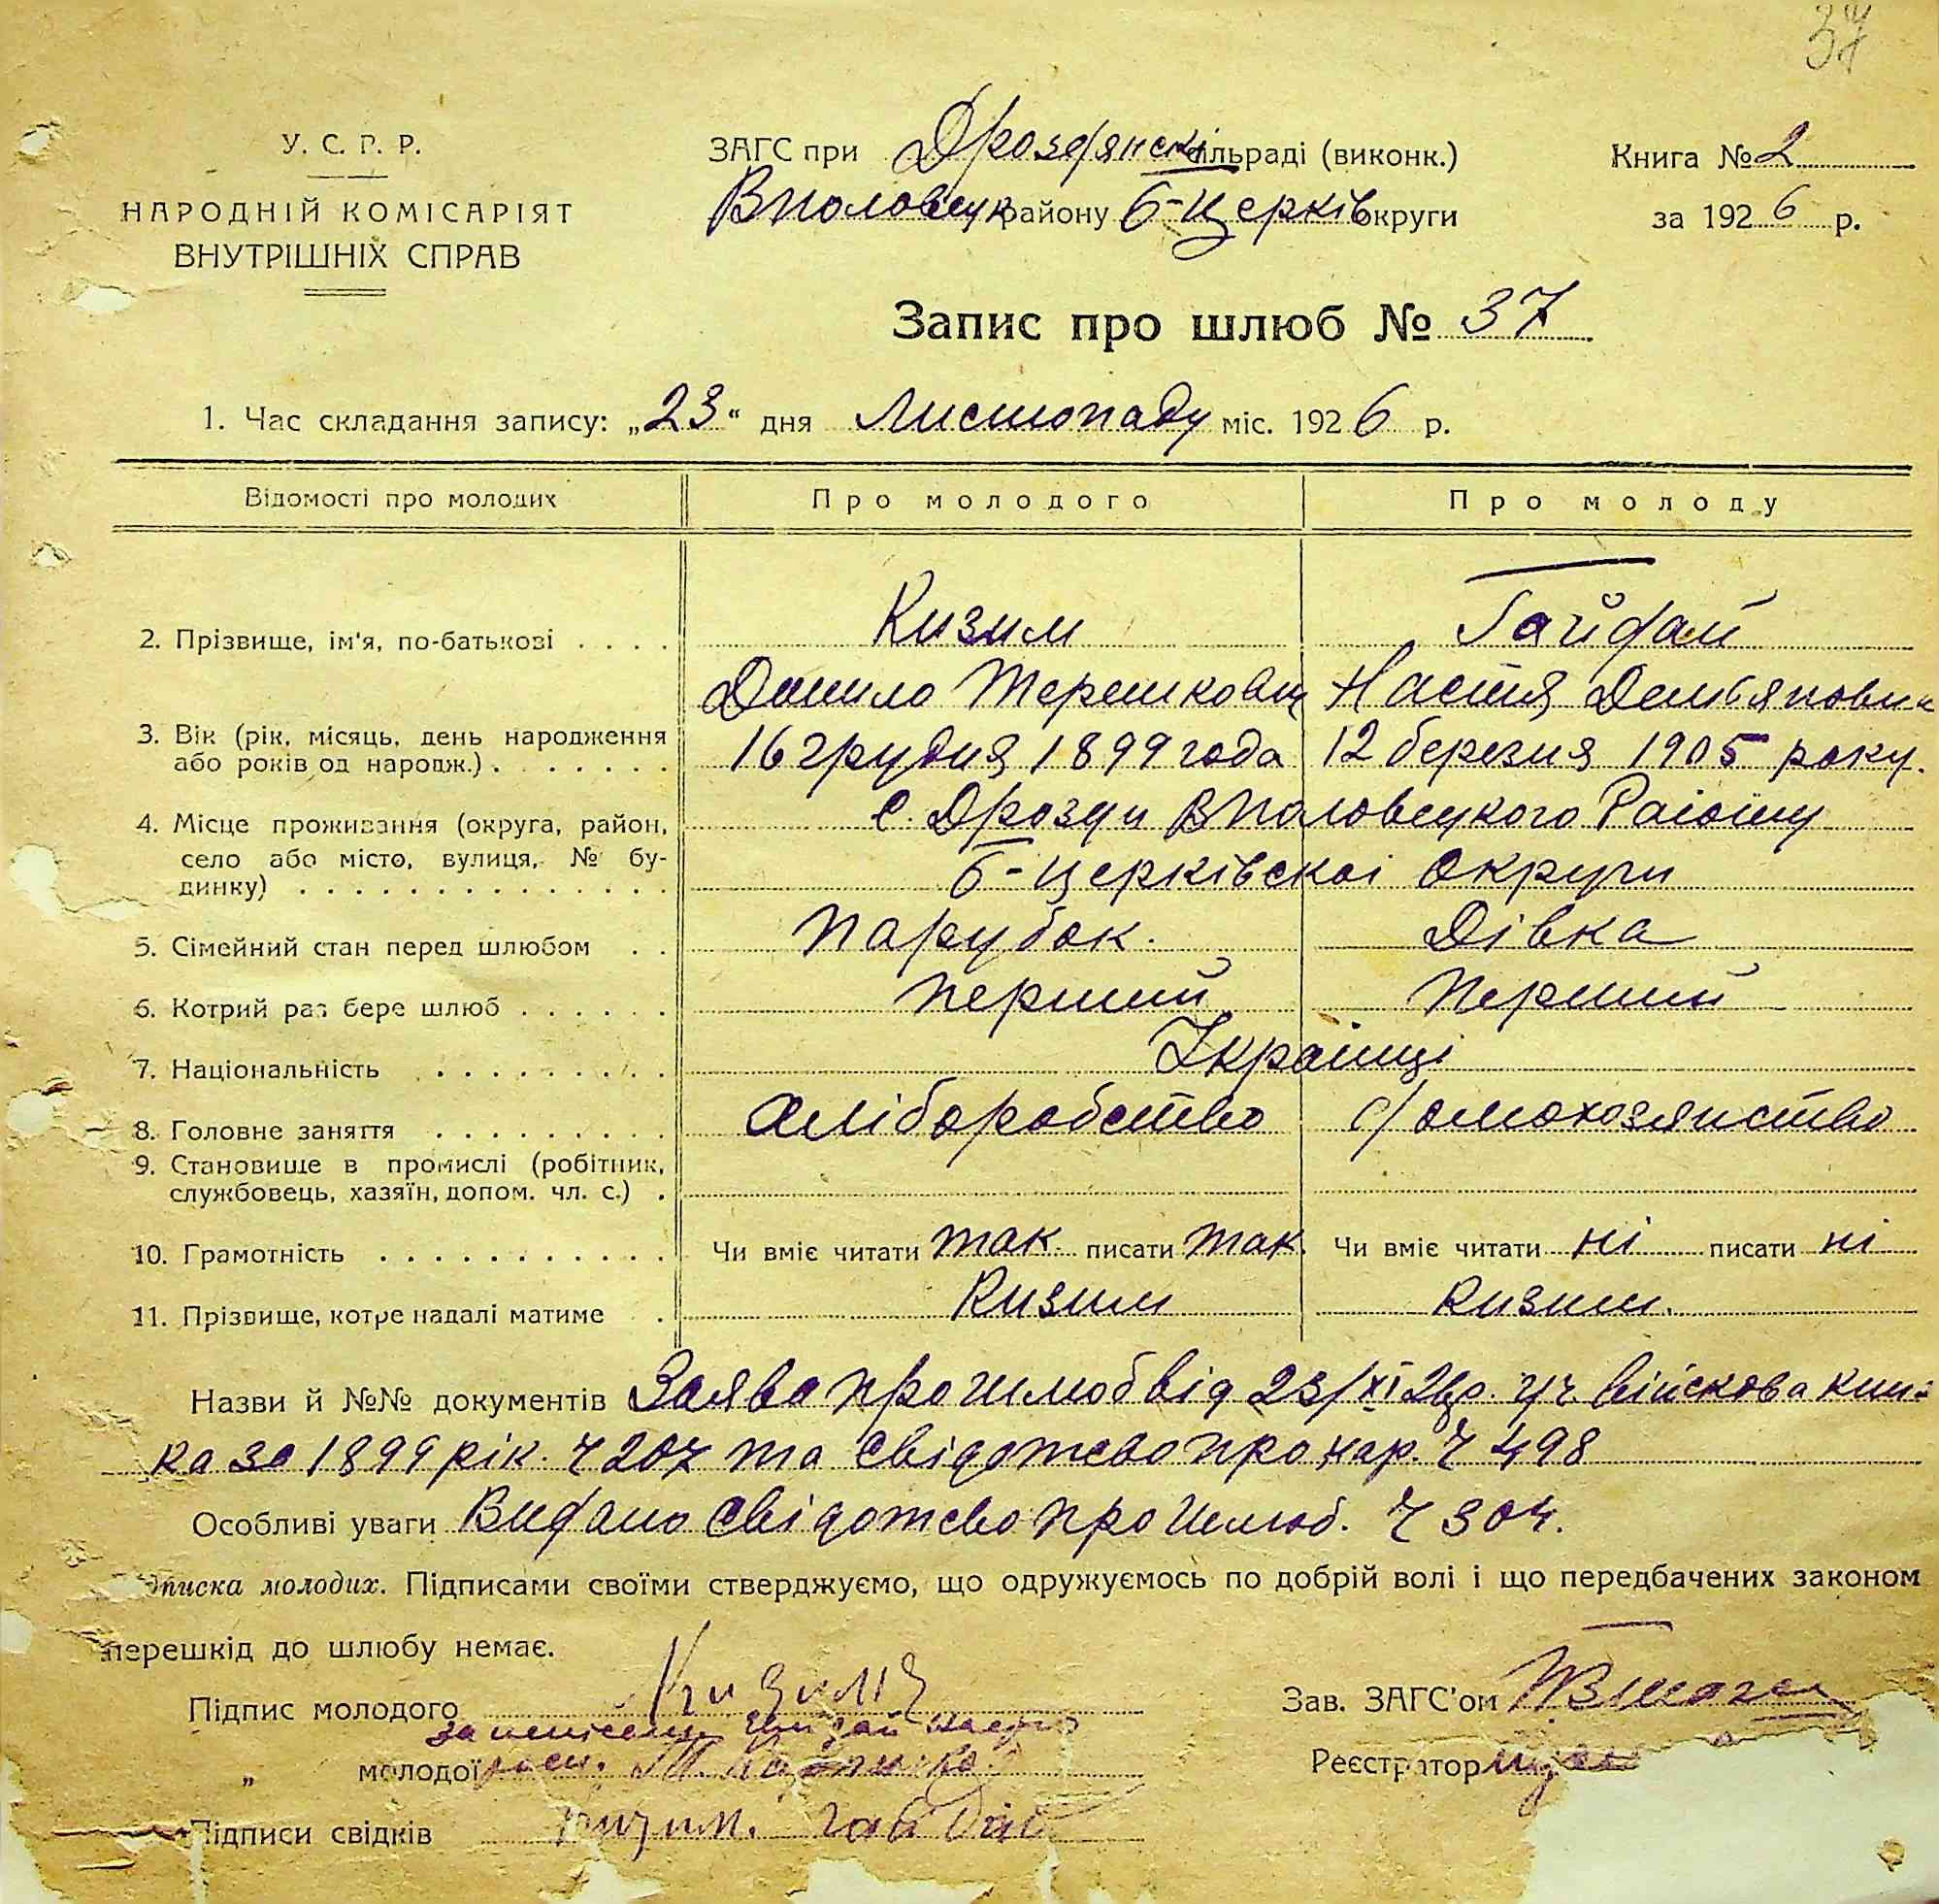 37
У. С. Р. Р.
НАРОДНІЙ КОМІСАРІЯТ
ВНУТРІШНІХ СПРАВ
ЗАГС при Дроздянскі сільраді (виконк.)
Вполовецк району Б-Церків округи
Книга № 2
за 1926 р.
Запис про шлюб № 37
1. Час складання запису: „23“ дня Листопаду міс. 1926 р.
Відомості про молодих Про молодого Про молоду
2. Прізвище, ім'я, по-батькові . . . . Кизим Гайдай
Данило Терешкович Настя Демьяновн
3. Вік (рік, місяць, день народження
або років од народж.) . . . . . . . 16 грудня 1899 года 12 березня 1905 року.
4. Місце проживання (округа, район, с. Дрозди Вполовецкого Району
село або місто, вулиця, № бу-
динку) . . . . . . . . . . . . . . Б-Церківскої Округи
5. Сімейний стан перед шлюбом . . Парубок. Дівка
6. Котрий раз бере шлюб . . . . . . перший Перший
7. Національність . . . . . . . . . Українці
8. Головне заняття . . . . . . . . . хліборобство домохозяиство
9. Становище в промислі (робітник,
службовець, хазяїн, допом. чл. с.) .
10. Грамотність . . . . . . . . . . . Чи вміє читати так писати так. Чи вміє читати ні писати ні
11. Прізвище, котре надалі матиме . Кизим Кизим.
Назви й №№ документів Заява про шлюб від 23/XI 26р. уч. військова книж
ка за 1899 рік. Ч 207 та свідотсво про нар. Ч 498
Особливі уваги Видано свідотсво про шлюб. Ч 304.
дписка молодих. Підписами своїми стверджуємо, що одружуємось по добрій волі і що передбачених законом
перешкід до шлюбу немає.
Підпис молодого Кизимъ
Зав. ЗАГС'ом
Гайдай
„ молодої
Реєстратор
Підписи свідків Кизим. Гайдай